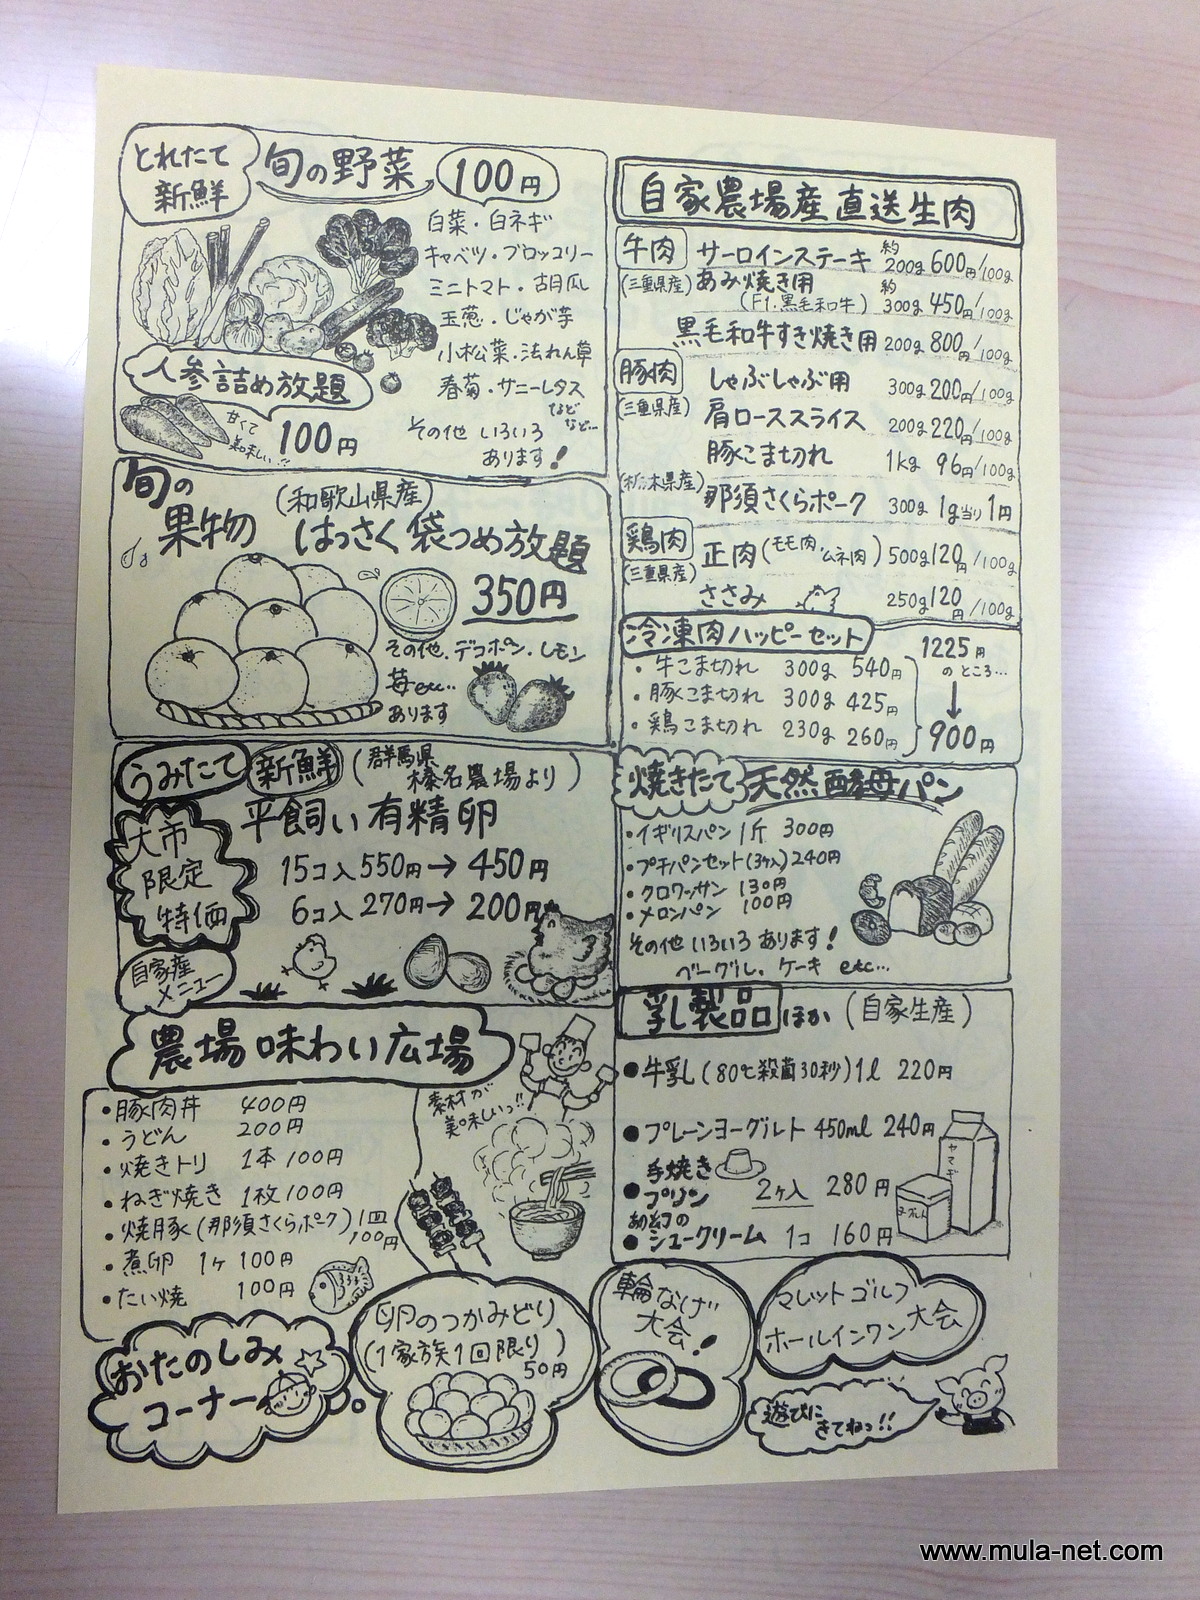 とれたて
新鮮
旬の野菜
100円
白菜・白ネギ
キャベツ・ブロッコリー
ミニトマト・胡瓜
玉葱・じゃが芋
小松菜・法れん草
春菊・サニーレタス
などなど…
その他 いろいろ
あります!
人参詰め放題
甘くて
美味しい!!
100円
旬の
果物
(和歌山県産)
はっさく袋つめ放題
350円
その他、デコポン、レモン
苺etc…
あります
うみたて 新鮮 (群馬県
榛名農場より)
平飼い有精卵
大市
限定
特価
15コ入550円→450円
6コ入270円→200円
自家産
メニュー
農場味わい広場
・豚肉丼 400円
・うどん 200円
・焼きトリ 1本100円
・ねぎ焼き 1枚100円
・焼豚(那須さくらポーク)1皿
100円
・煮卵 1ヶ100円
・たい焼 100円
素材が
美味しいっ!!
自家農場産直送生肉
牛肉 サーロインステーキ 約200g 600円/100g
(三重県産) あみ焼き用 約300g 450円/100g
(F1.黒毛和牛)
黒毛和牛すき焼き用 200g 800円/100g
豚肉 しゃぶしゃぶ用 300g 200円/100g
(三重県産) 肩ローススライス 200g 220円/100g
豚こま切れ 1kg 96円/100g
(栃木県産) 那須さくらポーク 300g 1g当り1円
鶏肉 正肉(モモ肉・ムネ肉) 500g 120円/100g
(三重県産) ささみ 250g 120円/100g
冷凍肉ハッピーセット
・牛こま切れ 300g 540円
・豚こま切れ 300g 425円
・鶏こま切れ 230g 260円
1225円
のところ…
↓
900円
焼きたて 天然酵母パン
・イギリスパン 1斤 300円
・プチパンセット(3ヶ入)240円
・クロワッサン 130円
・メロンパン 100円
その他 いろいろ あります!
ベーグル、ケーキ etc…
乳製品ほか (自家生産)
●牛乳(80℃殺菌30秒)1ℓ 220円
●プレーンヨーグルト 450ml 240円
手焼き
●プリン 2ヶ入 280円
●シュークリーム 1コ 160円
おたのしみ
コーナー
卵のつかみどり
(1家族1回限り)
50円
輪なげ
大会!
マレットゴルフ
ホールインワン大会
遊びに
きてねっ!!
www.mula-net.com